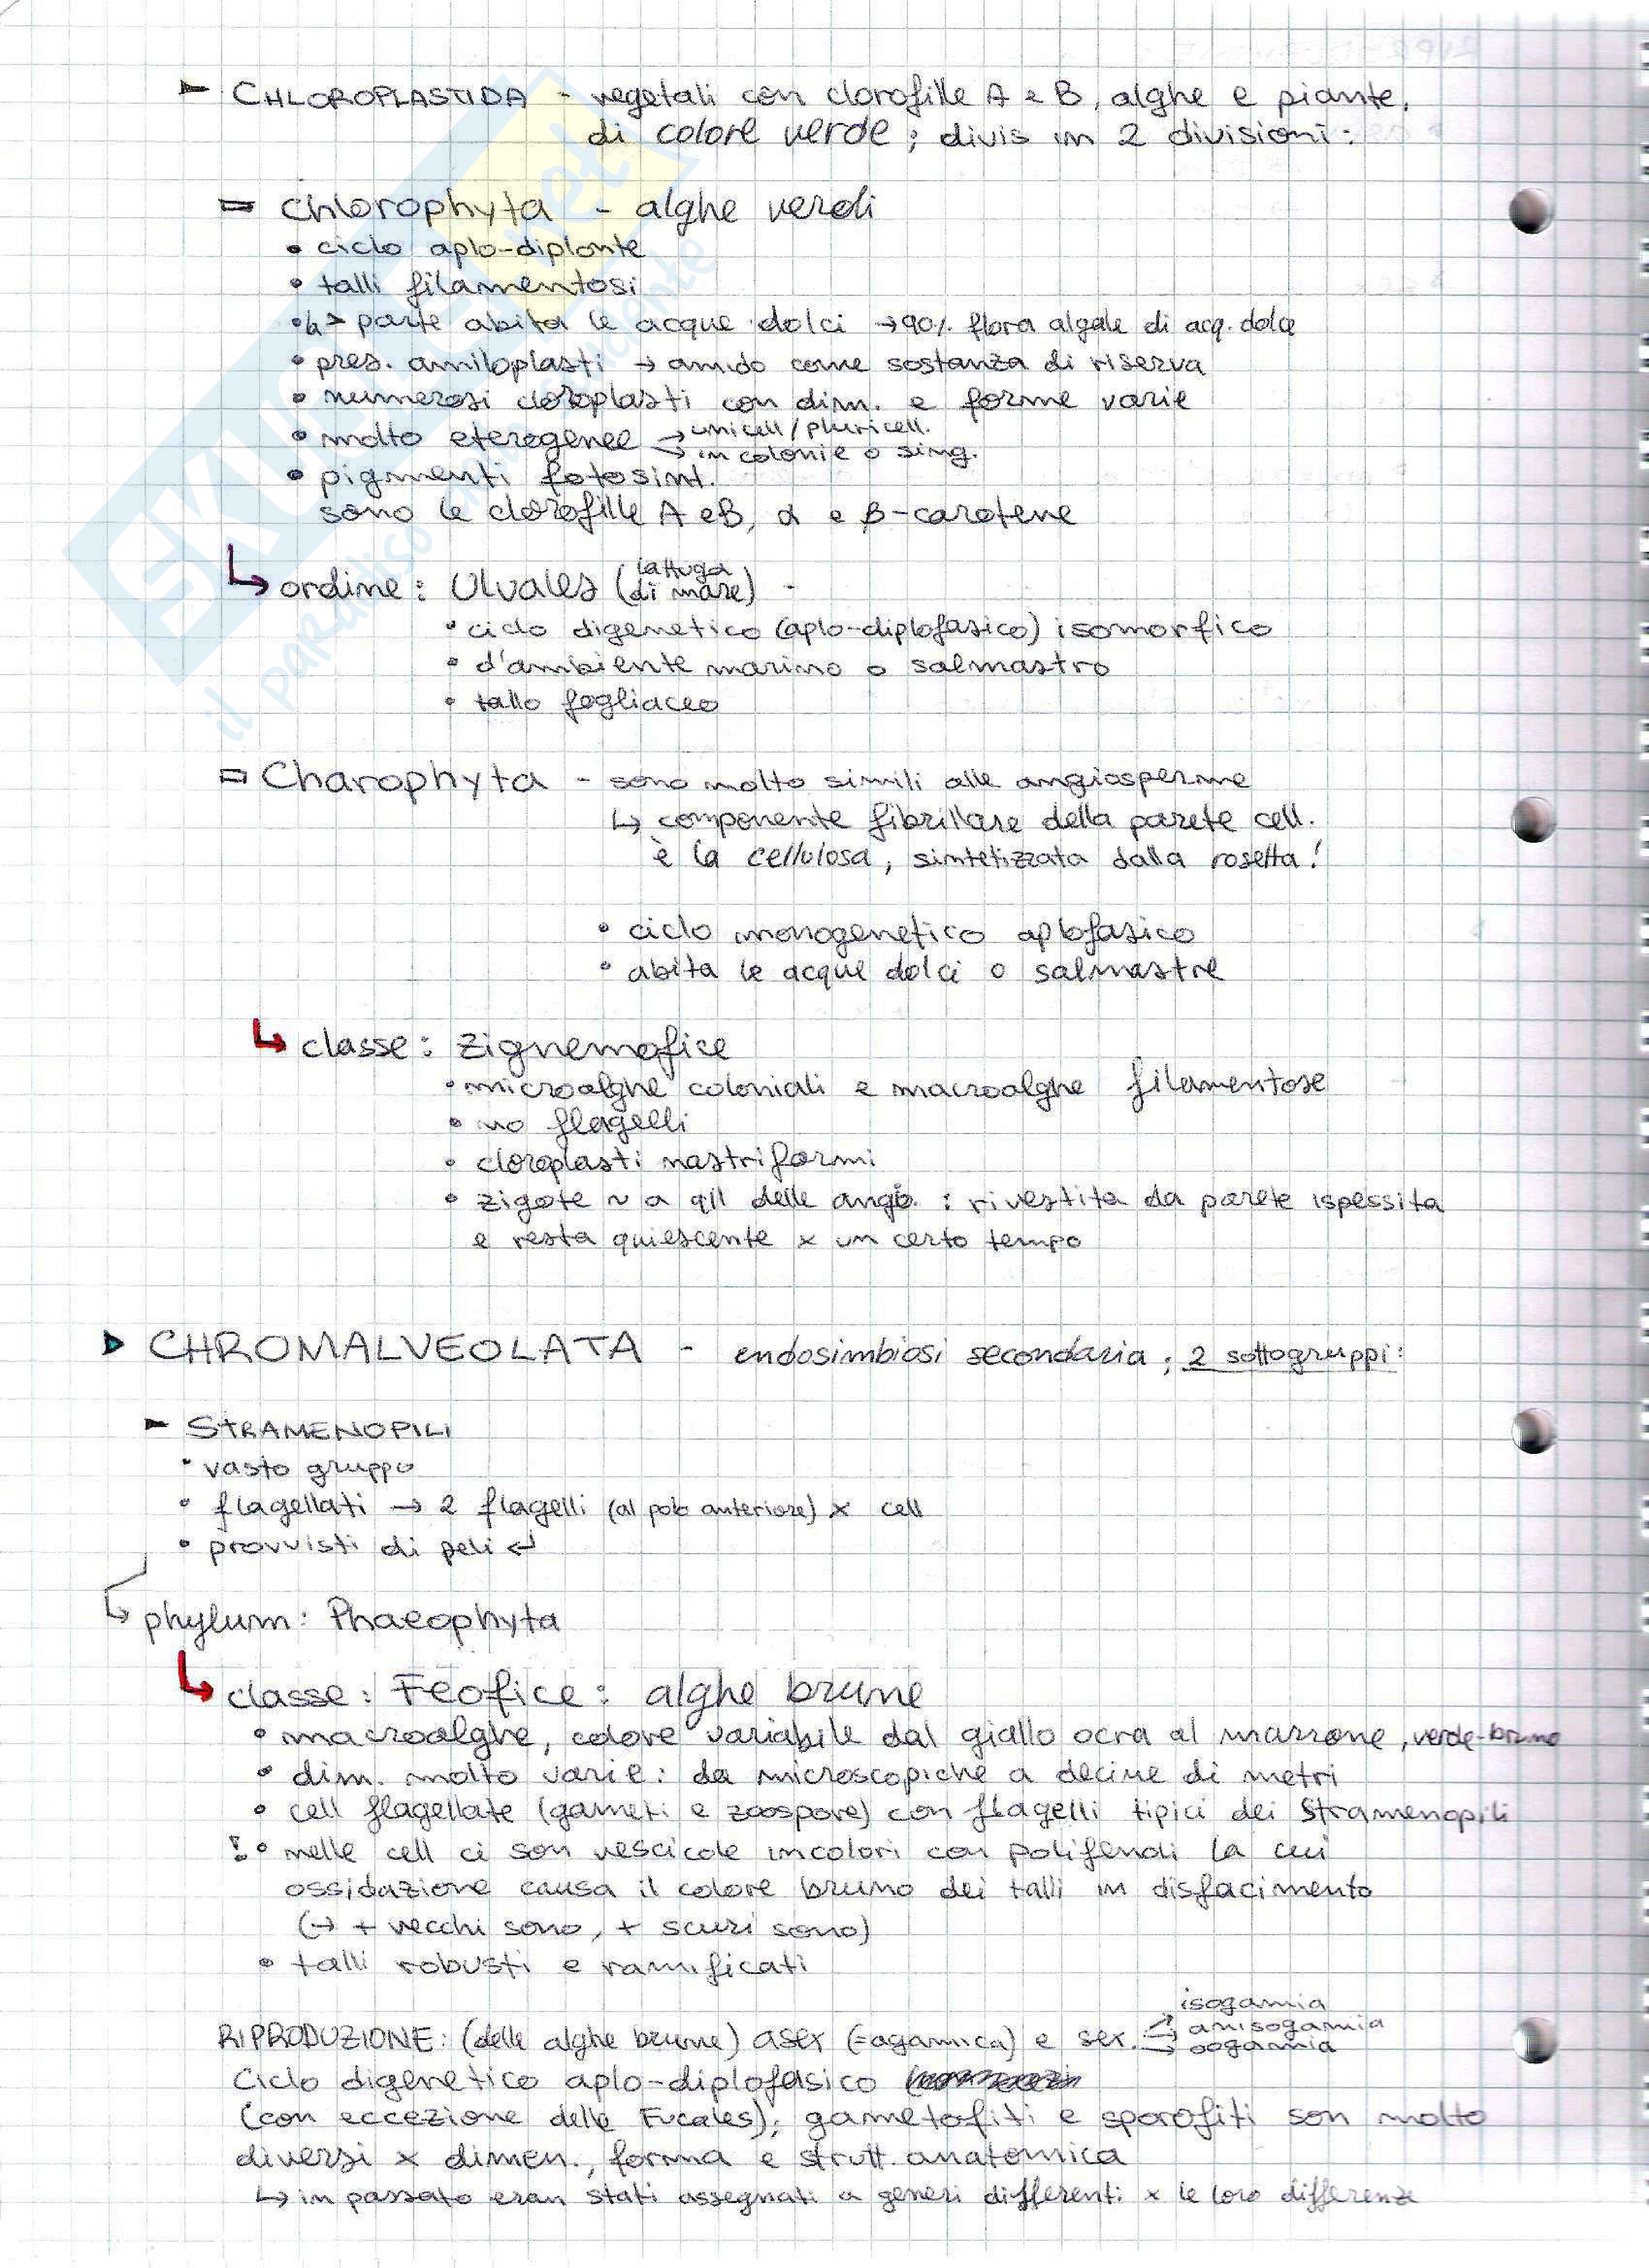 ► CHLOROPLASTIDA - vegetali con clorofille A e B, alghe e piante,
di colore verde; divis in 2 divisioni:
= Chlorophyta - alghe verdi
• ciclo aplo-diplonte
• talli filamentosi
• la > parte abita le acque dolci → 90% flora algale di acq. dolce
• pres. amiloplasti → amido come sostanza di riserva
• numerosi cloroplasti con dim. e forme varie
• molto eterogenee → unicell/pluricell.
→ in colonie o sing.
• pigmenti fotosint.
sono le clorofille A e B, α e β-carotene
↳ ordine: Ulvales (lattuga di mare) -
• ciclo digenetico (aplo-diplofasico) isomorfico
• d'ambiente marino o salmastro
• tallo fogliaceo
= Charophyta - sono molto simili alle angiosperme
↳ componente fibrillare della parete cell.
è la cellulosa, sintetizzata dalla rosetta!
• ciclo monogenetico aplofasico
• abita le acque dolci o salmastre
↳ classe: Zignemofice
• microalghe coloniali e macroalghe filamentose
• no flagelli
• cloroplasti nastriformi
• zigote ~ a qll delle angio. : rivestita da parete ispessita
e resta quiescente x un certo tempo
► CHROMALVEOLATA - endosimbiosi secondaria; 2 sottogruppi:
► STRAMENOPILI
• vasto gruppo
• flagellati → 2 flagelli (al polo anteriore) x cell
• provvisti di peli ↵
↳ phylum: Phaeophyta
↳ classe: Feofice: alghe brune
• macroalghe, colore variabile dal giallo ocra al marrone, verde-bruno
• dim. molto varie: da microscopiche a decine di metri
• cell flagellate (gameti e zoospore) con flagelli tipici dei Stramenopili
! • nelle cell ci son vescicole incolori con polifenoli la cui
ossidazione causa il colore bruno dei talli in disfacimento
(→ + vecchi sono, + scuri sono)
• talli robusti e ramificati
RIPRODUZIONE: (delle alghe brune) asex (=agamica) e sex. → isogamia
→ anisogamia
→ oogamia
Ciclo digenetico aplo-diplofasico
(con eccezione delle Fucales); gametofiti e sporofiti son molto
diversi x dimen., forma e strutt. anatomica
↳ in passato eran stati assegnati a generi differenti x le loro differenze
SKUOLA.net
il paradiso dello studente